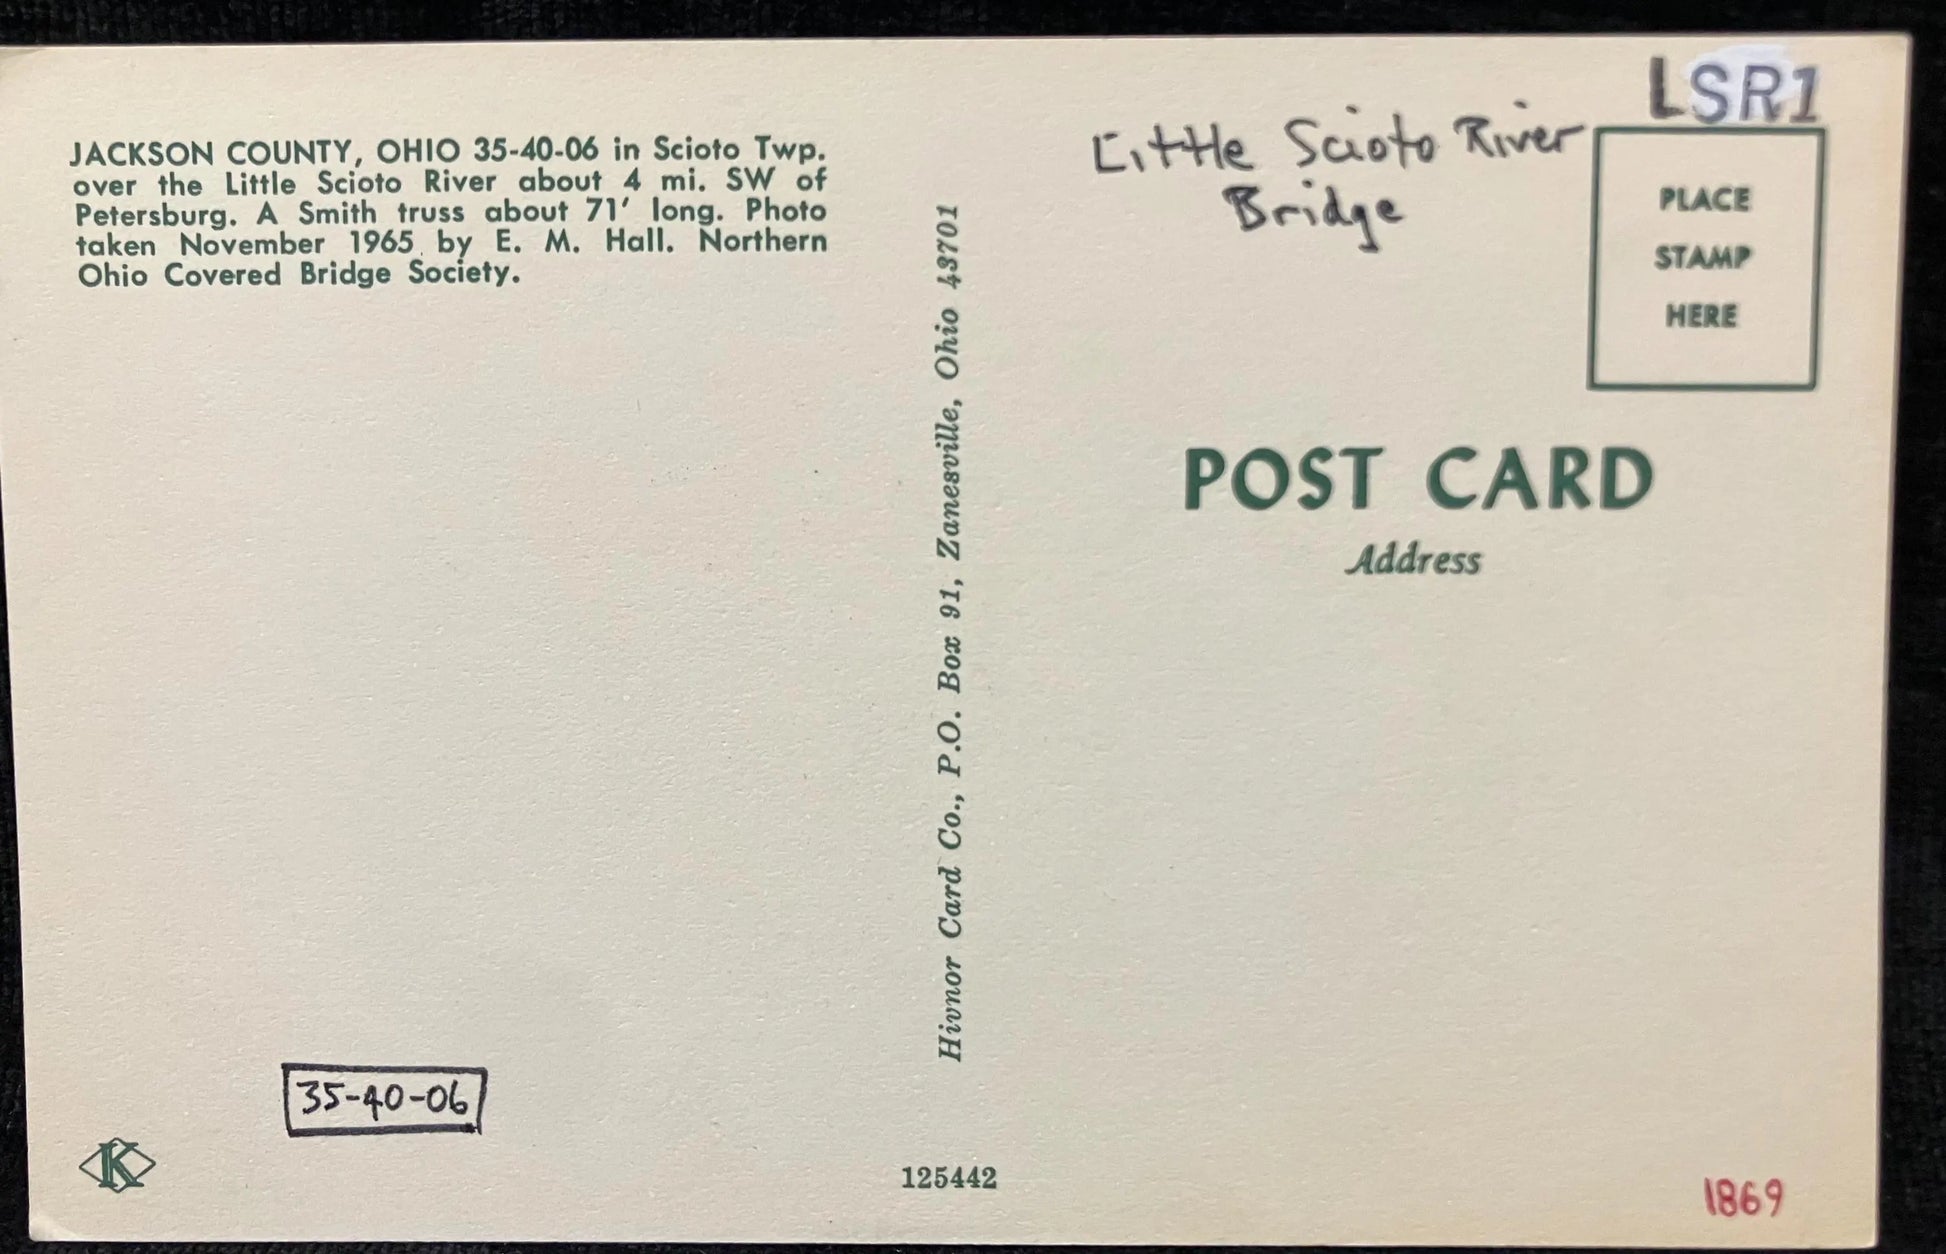 JACKSON COUNTY, OHIO 35-40-06 in Scioto Twp.
over the Little Scioto River about 4 mi. SW of
Petersburg. A Smith truss about 71' long. Photo
taken November 1965 by E. M. Hall. Northern
Ohio Covered Bridge Society.
35-40-06
K
Hivnor Card Co., P.O. Box 91, Zanesville, Ohio 43701
125442
LSR1
Little Scioto River
Bridge
PLACE
STAMP
HERE
POST CARD
Address
1869